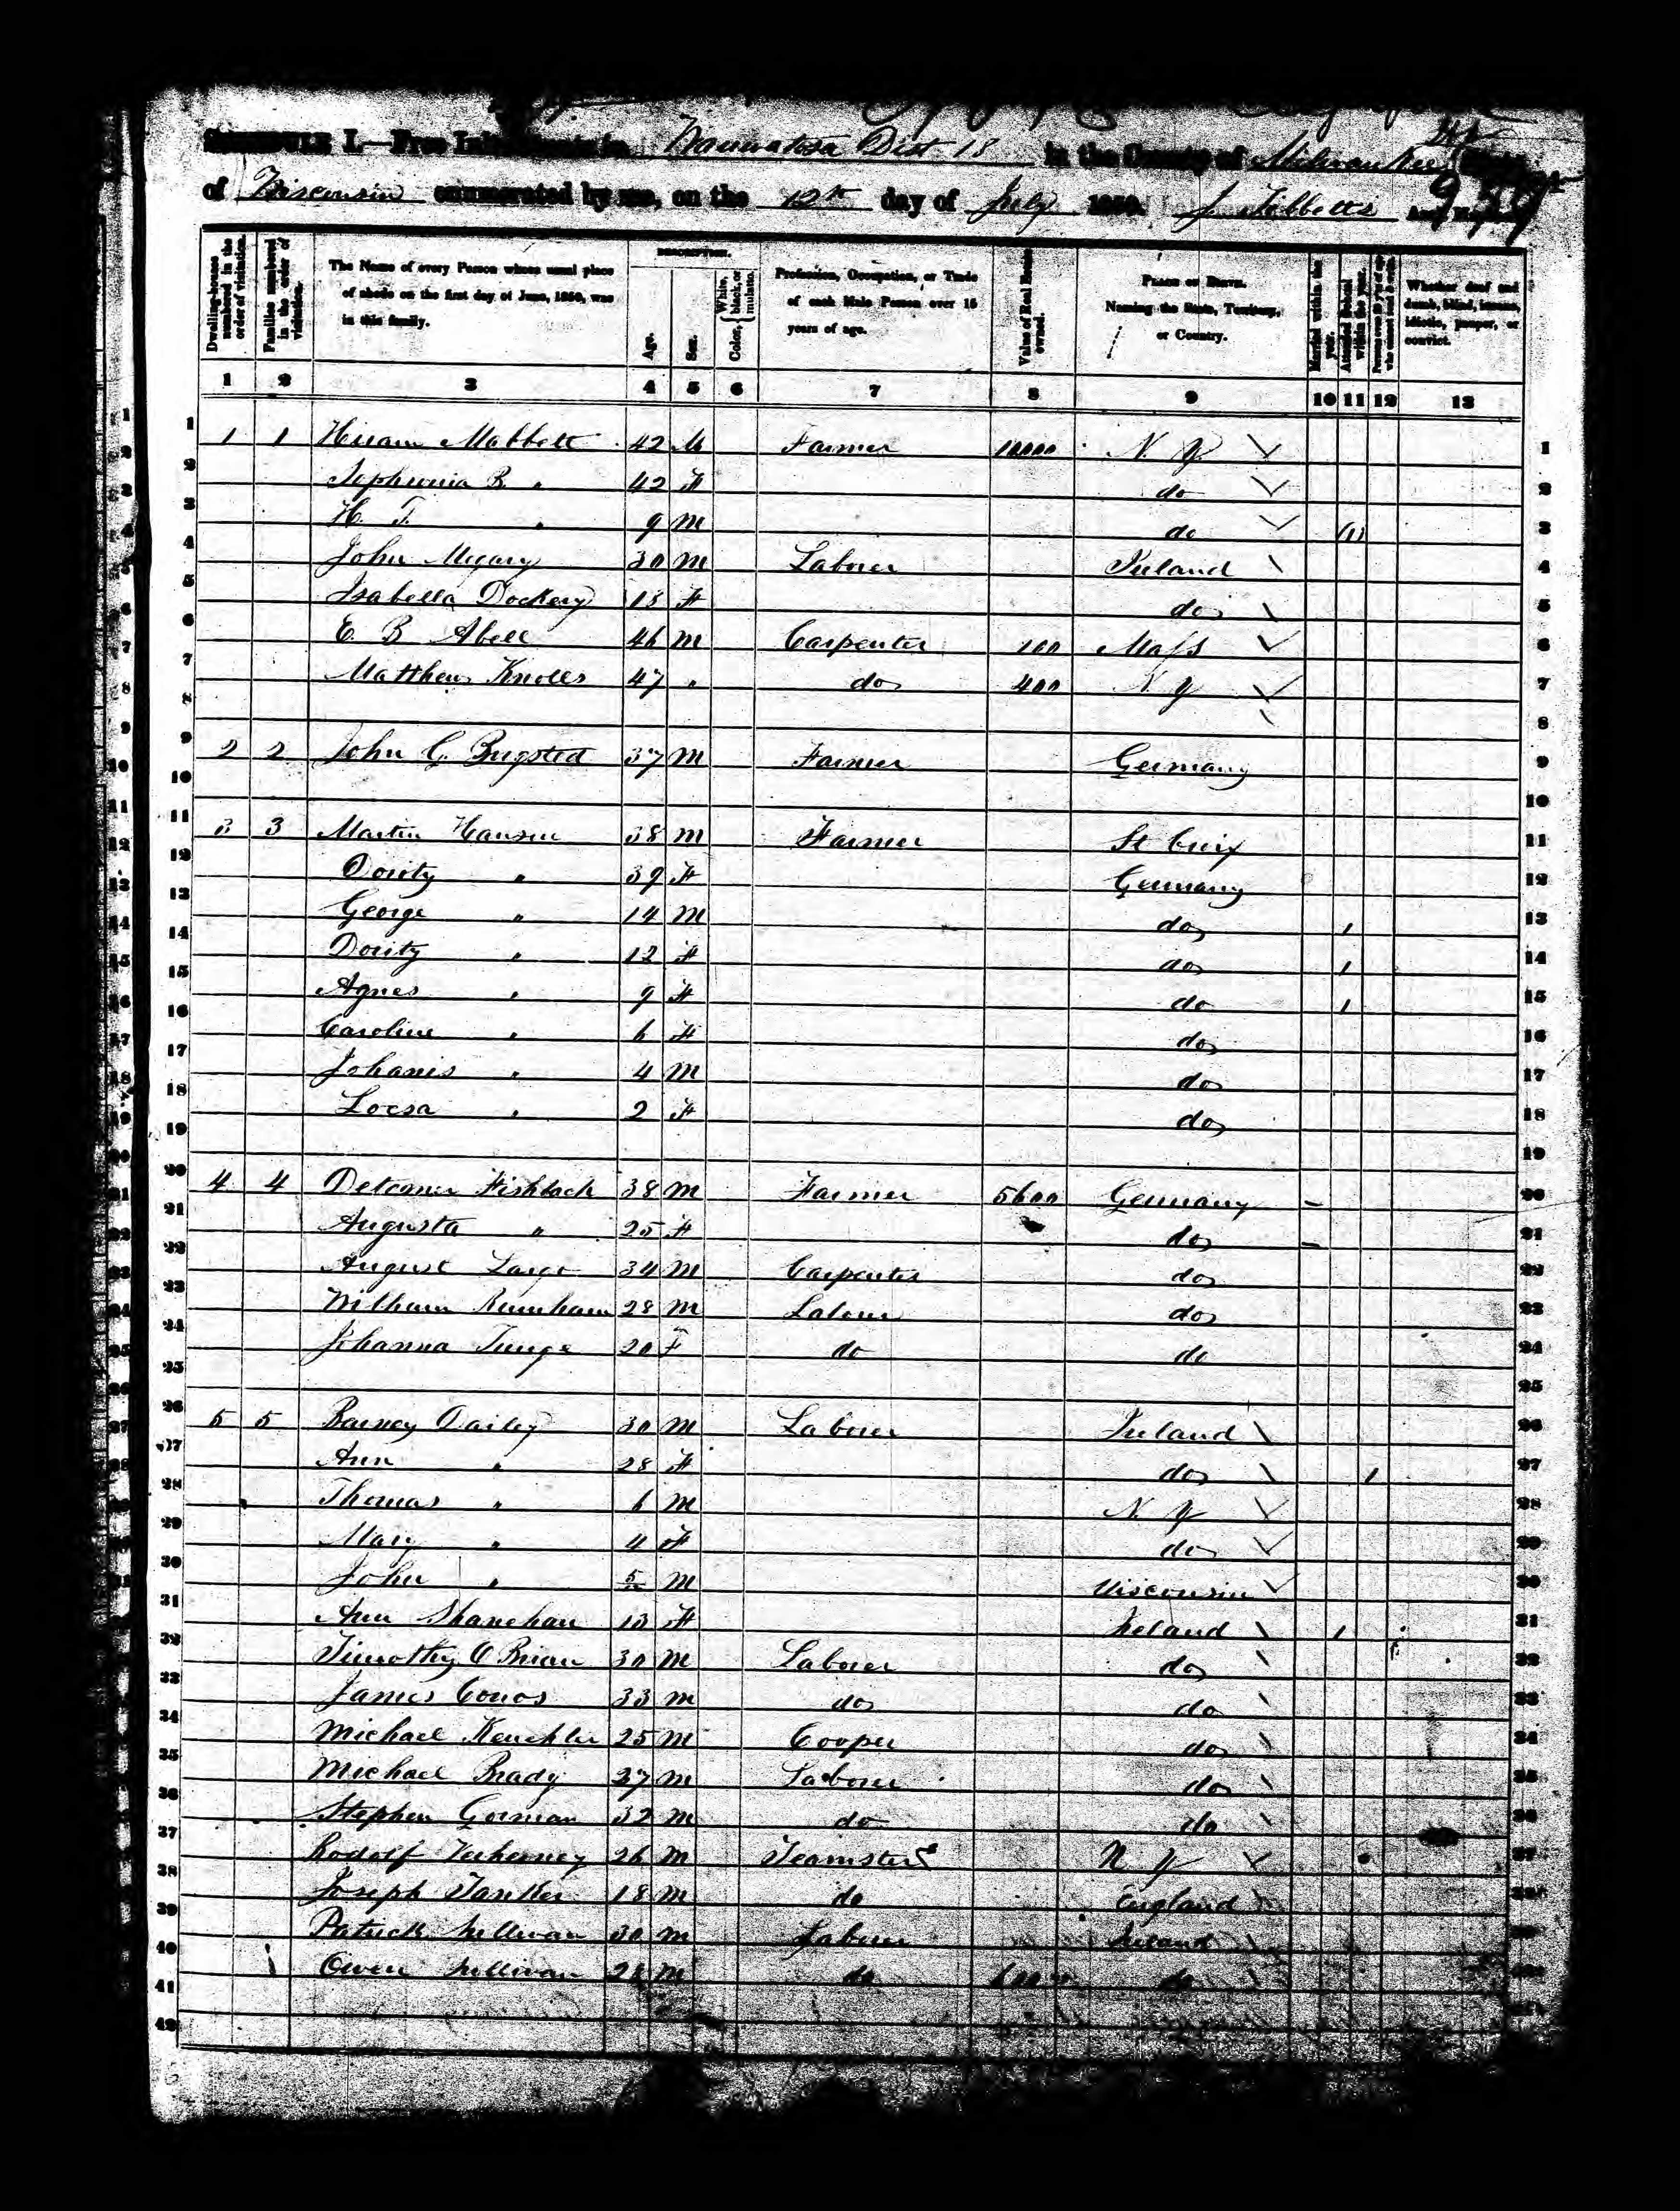 SCHEDULE I.—Free Inhabitants in Wauwatosa Dist 18 in the County of Milwaukee State
of Wisconsin enumerated by me, on the 12th day of July 1850. J. Tibbetts Ass't Marshal
Dwelling-houses numbered in the order of visitation.
Families numbered in the order of visitation.
The Name of every Person whose usual place of abode on the first day of June, 1850, was in this family.
DESCRIPTION.
Age.
Sex.
Color, { White, black, or mulatto.
Profession, Occupation, or Trade of each Male Person over 15 years of age.
Value of Real Estate owned.
PLACE OF BIRTH. Naming the State, Territory, or Country.
Married within the year.
Attended School within the year.
Persons over 20 y'rs of age who cannot read & write.
Whether deaf and dumb, blind, insane, idiotic, pauper, or convict.
1 2 3 4 5 6 7 8 9 10 11 12 13
1 1 1 Hiram Mabbett 42 M Farmer 10000 N. Y. 1
2 Sophronia B. " 42 F do 2
3 H. T. " 9 M do (1) 3
4 John Megary 30 M Laborer Ireland 4
5 Isabella Dockery 18 F do 5
6 E. B Abell 46 M Carpenter 100 Mass 6
7 Matthew Knolls 47 " do 400 N. Y 7
8 8
9 2 2 John G. 37 M Farmer Germany 9
10 10
11 3 3 Martin Hansen 38 M Farmer St Croix 11
12 Dority " 39 F Germany 12
13 George " 14 M do 1 13
14 Dority " 12 F do 1 14
15 Agnes " 9 F do 1 15
16 Caroline " 6 F do 16
17 Johanis " 4 M do 17
18 Locsa " 2 F do 18
19 19
20 4 4 Fishback 38 M Farmer 5600 Germany 20
21 Augusta " 25 F do 21
22 August 34 M Carpenter do 22
23 William 28 M Laborer do 23
24 Johanna 20 F do do 24
25 25
26 5 5 Barney Dailey 30 M Laborer Ireland 26
27 Ann " 28 F do 1 27
28 Thomas " 6 M N. Y 28
29 Mary " 4 F do 29
30 John " M Wisconsin 30
31 Ann Shanehan 13 F Ireland 1 31
32 Timothy O Brian 30 M Laborer do 32
33 James Conos 33 M do do 33
34 Michael 25 M Cooper do 34
35 Michael Brady 27 M Laborer do 35
36 Stephen Gorman 32 M do do 36
37 Rodolf 26 M Teamster N Y 37
38 Joseph 18 M do England 38
39 Patrick Sullivan 30 M Laborer Ireland 39
40 Owen Sullivan 28 M do do 40
41
42